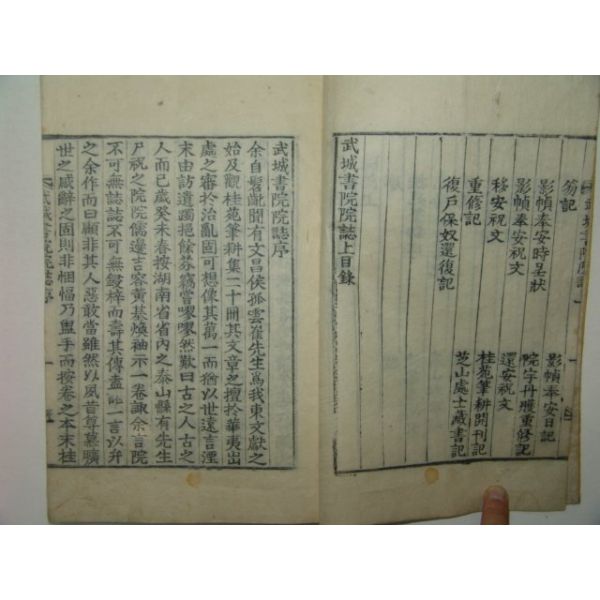 武城書院院誌
記
影幀奉安時呈狀 影幀奉安日記
影幀奉安祝文 院宇丹雘重修記
移安祝文 還安祝文
重修記 桂苑筆耕開刊記
復戶保奴還復記 芝山處士藏書記
武城書院院誌上目錄
武城書院院誌序
余自髫齔聞有文昌侯孤雲崔先生爲我東文獻之
始及觀桂苑筆耕集二十冊其文章之擅於華夷出
處之審於治亂固可想像其萬一而猶以世遠言湮
末由訪遺躅挹餘芬竊嘗嘐嘐然歎曰古之人古之
人而已歲癸未春按湖南省省內之泰山縣有先生
尸祝之院院儒邊吉容黃基煥袖示一卷諏余言院
不可無誌誌不可無鋟梓而壽其傳盍一言以弁
之余作而曰顧非其人惡敢當雖然以夙昔尊慕曠
世之感辭之固則非悃愊乃盥手而按卷之本末桂
武城書院院誌序 一